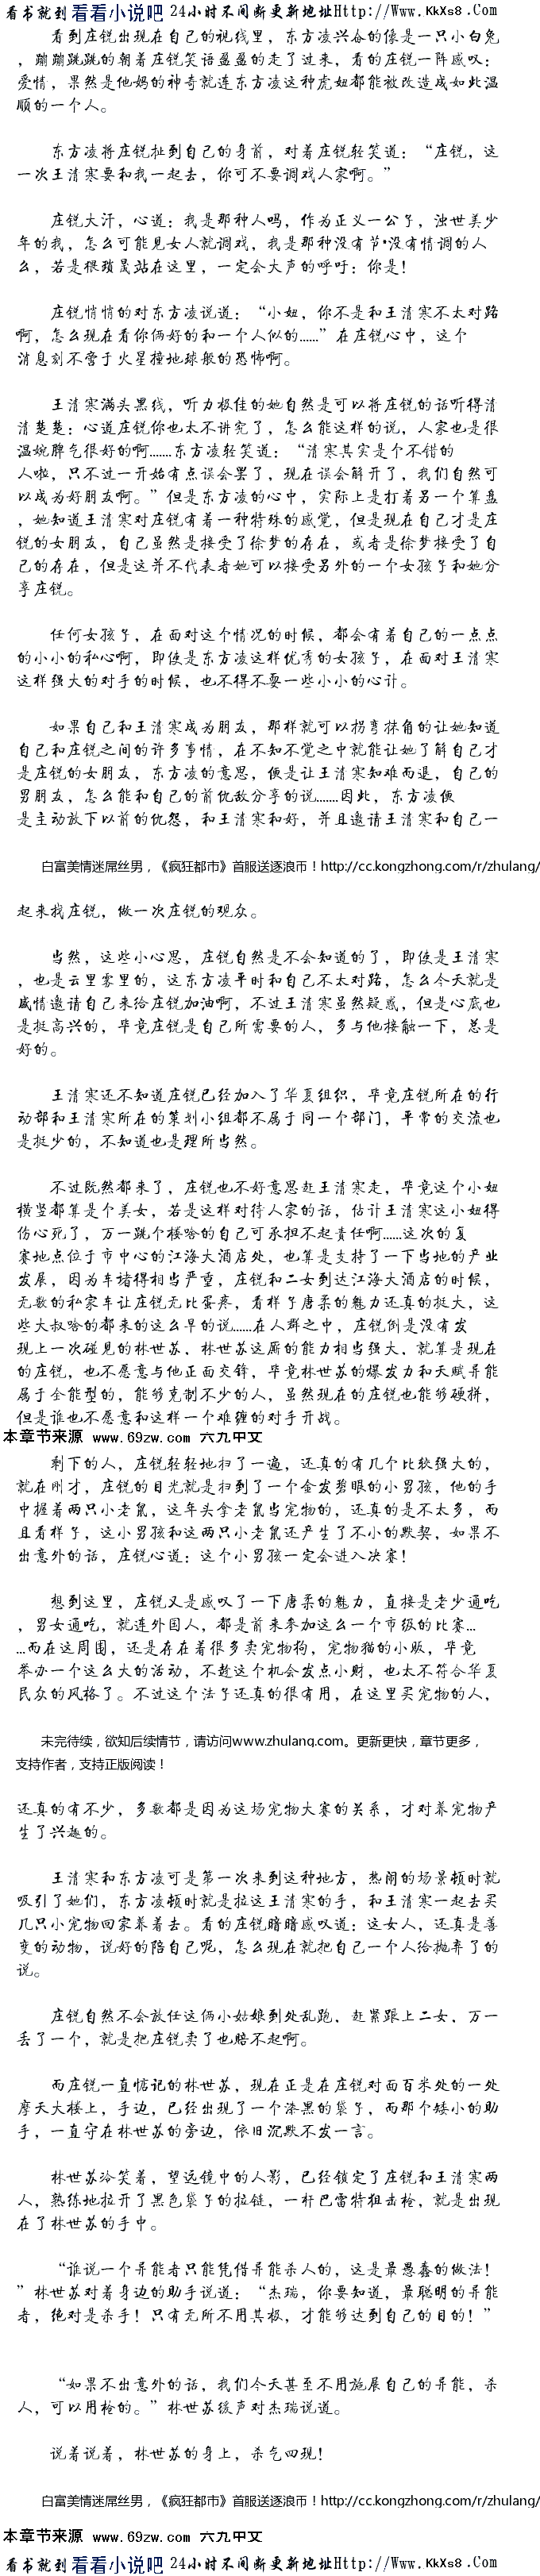 看书就到 看看小说吧 24小时不间断更新地址Http://Www.KkXs8.Com
看到庄锐出现在自己的视线里，东方凌兴奋的像是一只小白兔
，蹦蹦跳跳的朝着庄锐笑语盈盈的走了过来，看的庄锐一阵感叹：
爱情，果然是他妈的神奇就连东方凌这种虎妞都能被改造成如此温
顺的一个人。
东方凌将庄锐扯到自己的身前，对着庄锐轻笑道：“庄锐，这
一次王清寒要和我一起去，你可不要调戏人家啊。”
庄锐大汗，心道：我是那种人吗，作为正义一公子，浊世美少
年的我，怎么可能见女人就调戏，我是那种没有节*没有情调的人
么，若是猥琐晟站在这里，一定会大声的呼吁：你是！
庄锐悄悄的对东方凌说道：“小妞，你不是和王清寒不太对路
啊，怎么现在看你俩好的和一个人似的……”在庄锐心中，这个
消息刻不啻于火星撞地球般的恐怖啊。
王清寒满头黑线，听力极佳的她自然是可以将庄锐的话听得清
清楚楚：心道庄锐你也太不讲究了，怎么能这样的说，人家也是很
温婉脾气很好的啊.......东方凌轻笑道：“清寒其实是个不错的
人啦，只不过一开始有点误会罢了，现在误会解开了，我们自然可
以成为好朋友啊。”但是东方凌的心中，实际上是打着另一个算盘
，她知道王清寒对庄锐有着一种特殊的感觉，但是现在自己才是庄
锐的女朋友，自己虽然是接受了徐梦的存在，或者是徐梦接受了自
己的存在，但是这并不代表者她可以接受另外的一个女孩子和她分
享庄锐。
任何女孩子，在面对这个情况的时候，都会有着自己的一点点
的小小的私心啊，即使是东方凌这样优秀的女孩子，在面对王清寒
这样强大的对手的时候，也不得不耍一些小小的心计。
如果自己和王清寒成为朋友，那样就可以拐弯抹角的让她知道
自己和庄锐之间的许多事情，在不知不觉之中就能让她了解自己才
是庄锐的女朋友，东方凌的意思，便是让王清寒知难而退，自己的
男朋友，怎么能和自己的前仇敌分享的说.......因此，东方凌便
是主动放下以前的仇怨，和王清寒和好，并且邀请王清寒和自己一
白富美情迷屌丝男，《疯狂都市》首服送逐浪币！http://cc.kongzhong.com/r/zhulang/
起来找庄锐，做一次庄锐的观众。
当然，这些小心思，庄锐自然是不会知道的了，即使是王清寒
，也是云里雾里的，这东方凌平时和自己不太对路，怎么今天就是
盛情邀请自己来给庄锐加油啊，不过王清寒虽然疑惑，但是心底也
是挺高兴的，毕竟庄锐是自己所需要的人，多与他接触一下，总是
好的。
王清寒还不知道庄锐已经加入了华夏组织，毕竟庄锐所在的行
动部和王清寒所在的策划小组都不属于同一个部门，平常的交流也
是挺少的，不知道也是理所当然。
不过既然都来了，庄锐也不好意思赶王清寒走，毕竟这个小妞
横竖都算是个美女，若是这样对待人家的话，估计王清寒这小妞得
伤心死了，万一跳个楼啥的自己可承担不起责任啊……这次的复
赛地点位于市中心的江海大酒店处，也算是支持了一下当地的产业
发展，因为车堵得相当严重，庄锐和二女到达江海大酒店的时候，
无数的私家车让庄锐无比蛋疼，看样子唐柔的魅力还真的挺大，这
些大叔啥的都来的这么早的说……在人群之中，庄锐倒是没有发
现上一次碰见的林世苏，林世苏这厮的能力相当强大，就算是现在
的庄锐，也不愿意与他正面交锋，毕竟林世苏的爆发力和天赋异能
属于全能型的，能够克制不少的人，虽然现在的庄锐也能够硬拼，
但是谁也不愿意和这样一个难缠的对手开战。
本章节来源 www.69zw.com 六九中文
剩下的人，庄锐轻轻地扫了一遍，还真的有几个比较强大的，
就在刚才，庄锐的目光就是扫到了一个金发碧眼的小男孩，他的手
中握着两只小老鼠，这年头拿老鼠当宠物的，还真的是不太多，而
且看样子，这小男孩和这两只小老鼠还产生了不小的默契，如果不
出意外的话，庄锐心道：这个小男孩一定会进入决赛！
想到这里，庄锐又是感叹了一下唐柔的魅力，直接是老少通吃
，男女通吃，就连外国人，都是前来参加这么一个市级的比赛...
...而在这周围，还是存在着很多卖宠物狗，宠物猫的小贩，毕竟
举办一个这么大的活动，不趁这个机会发点小财，也太不符合华夏
民众的风格了。不过这个法子还真的很有用，在这里买宠物的人，
未完待续，欲知后续情节，请访问www.zhulang.com。更新更快，章节更多，
支持作者，支持正版阅读！
还真的有不少，多数都是因为这场宠物大赛的关系，才对养宠物产
生了兴趣的。
王清寒和东方凌可是第一次来到这种地方，热闹的场景顿时就
吸引了她们，东方凌顿时就是拉这王清寒的手，和王清寒一起去买
几只小宠物回家养着去。看的庄锐暗暗感叹道：这女人，还真是善
变的动物，说好的陪自己呢，怎么现在就把自己一个人给抛弃了的
说。
庄锐自然不会放任这俩小姑娘到处乱跑，赶紧跟上二女，万一
丢了一个，就是把庄锐卖了也赔不起啊。
而庄锐一直惦记的林世苏，现在正是在庄锐对面百米处的一处
摩天大楼上，手边，已经出现了一个漆黑的袋子，而那个矮小的助
手，一直守在林世苏的旁边，依旧沉默不发一言。
林世苏冷笑着，望远镜中的人影，已经锁定了庄锐和王清寒两
人，熟练地拉开了黑色袋子的拉链，一杆巴雷特狙击枪，就是出现
在了林世苏的手中。
“谁说一个异能者只能凭借异能杀人的，这是最愚蠢的做法！
”林世苏对着身边的助手说道：“杰瑞，你要知道，最聪明的异能
者，绝对是杀手！只有无所不用其极，才能够达到自己的目的！”
“如果不出意外的话，我们今天甚至不用施展自己的异能，杀
人，可以用枪的。”林世苏缓声对杰瑞说道。
说着说着，林世苏的身上，杀气四现！
白富美情迷屌丝男，《疯狂都市》首服送逐浪币！http://cc.kongzhong.com/r/zhulang/
本章节来源 www.69zw.com 六九中文
看书就到 看看小说吧 24小时不间断更新地址Http://Www.KkXs8.Com